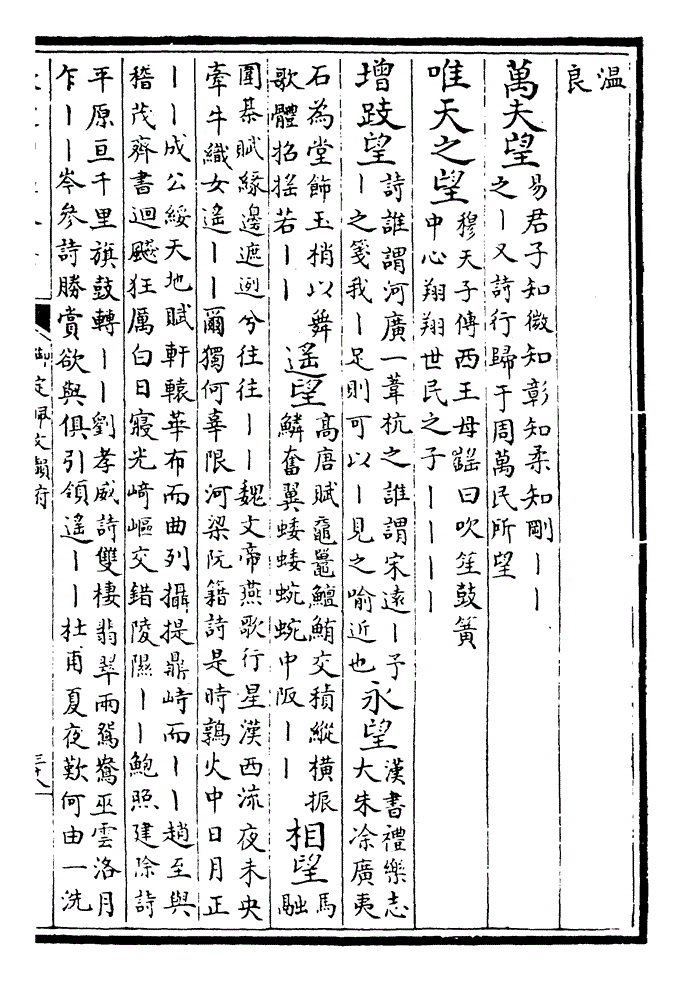 溫
良
萬夫望易君子知微知彰知柔知剛丨丨
之丨又詩行歸于周萬民所望
唯天之望穆天子傳西王母謡曰吹笙鼓簧
中心翔翔世民之子丨丨丨丨
增跂望詩誰謂河廣一葦杭之誰謂宋遠丨予
丨之箋我丨足則可以丨見之喻近也
永望漢書禮樂志
大朱涂廣夷
石為堂飾玉梢以舞
歌體招揺若丨丨
遥望高唐賦黿鼉鱣鮪交積縱横振
鱗奮翼蜲蜲蜿蜿中阪丨丨
相望馬
融
圍棊賦緣邊遮迾兮往往丨丨魏文帝燕歌行星漢西流夜未央
牽牛織女遥丨丨爾獨何辜限河梁阮籍詩是時鶉火中日月正
丨丨成公綏天地賦軒轅華布而曲列攝提鼎峙而丨丨趙至與
稽茂齊書迴飇狂厲白日寢光﨑嶇交錯陵隰丨丨鮑照建除詩
平原亘千里旗鼓轉丨丨劉孝威詩雙棲翡翠兩鴛鴦巫雲洛月
乍丨丨岑參詩勝賞欲與俱引領遥丨丨杜甫夏夜歎何由一洗
御定佩文韻府
三十八